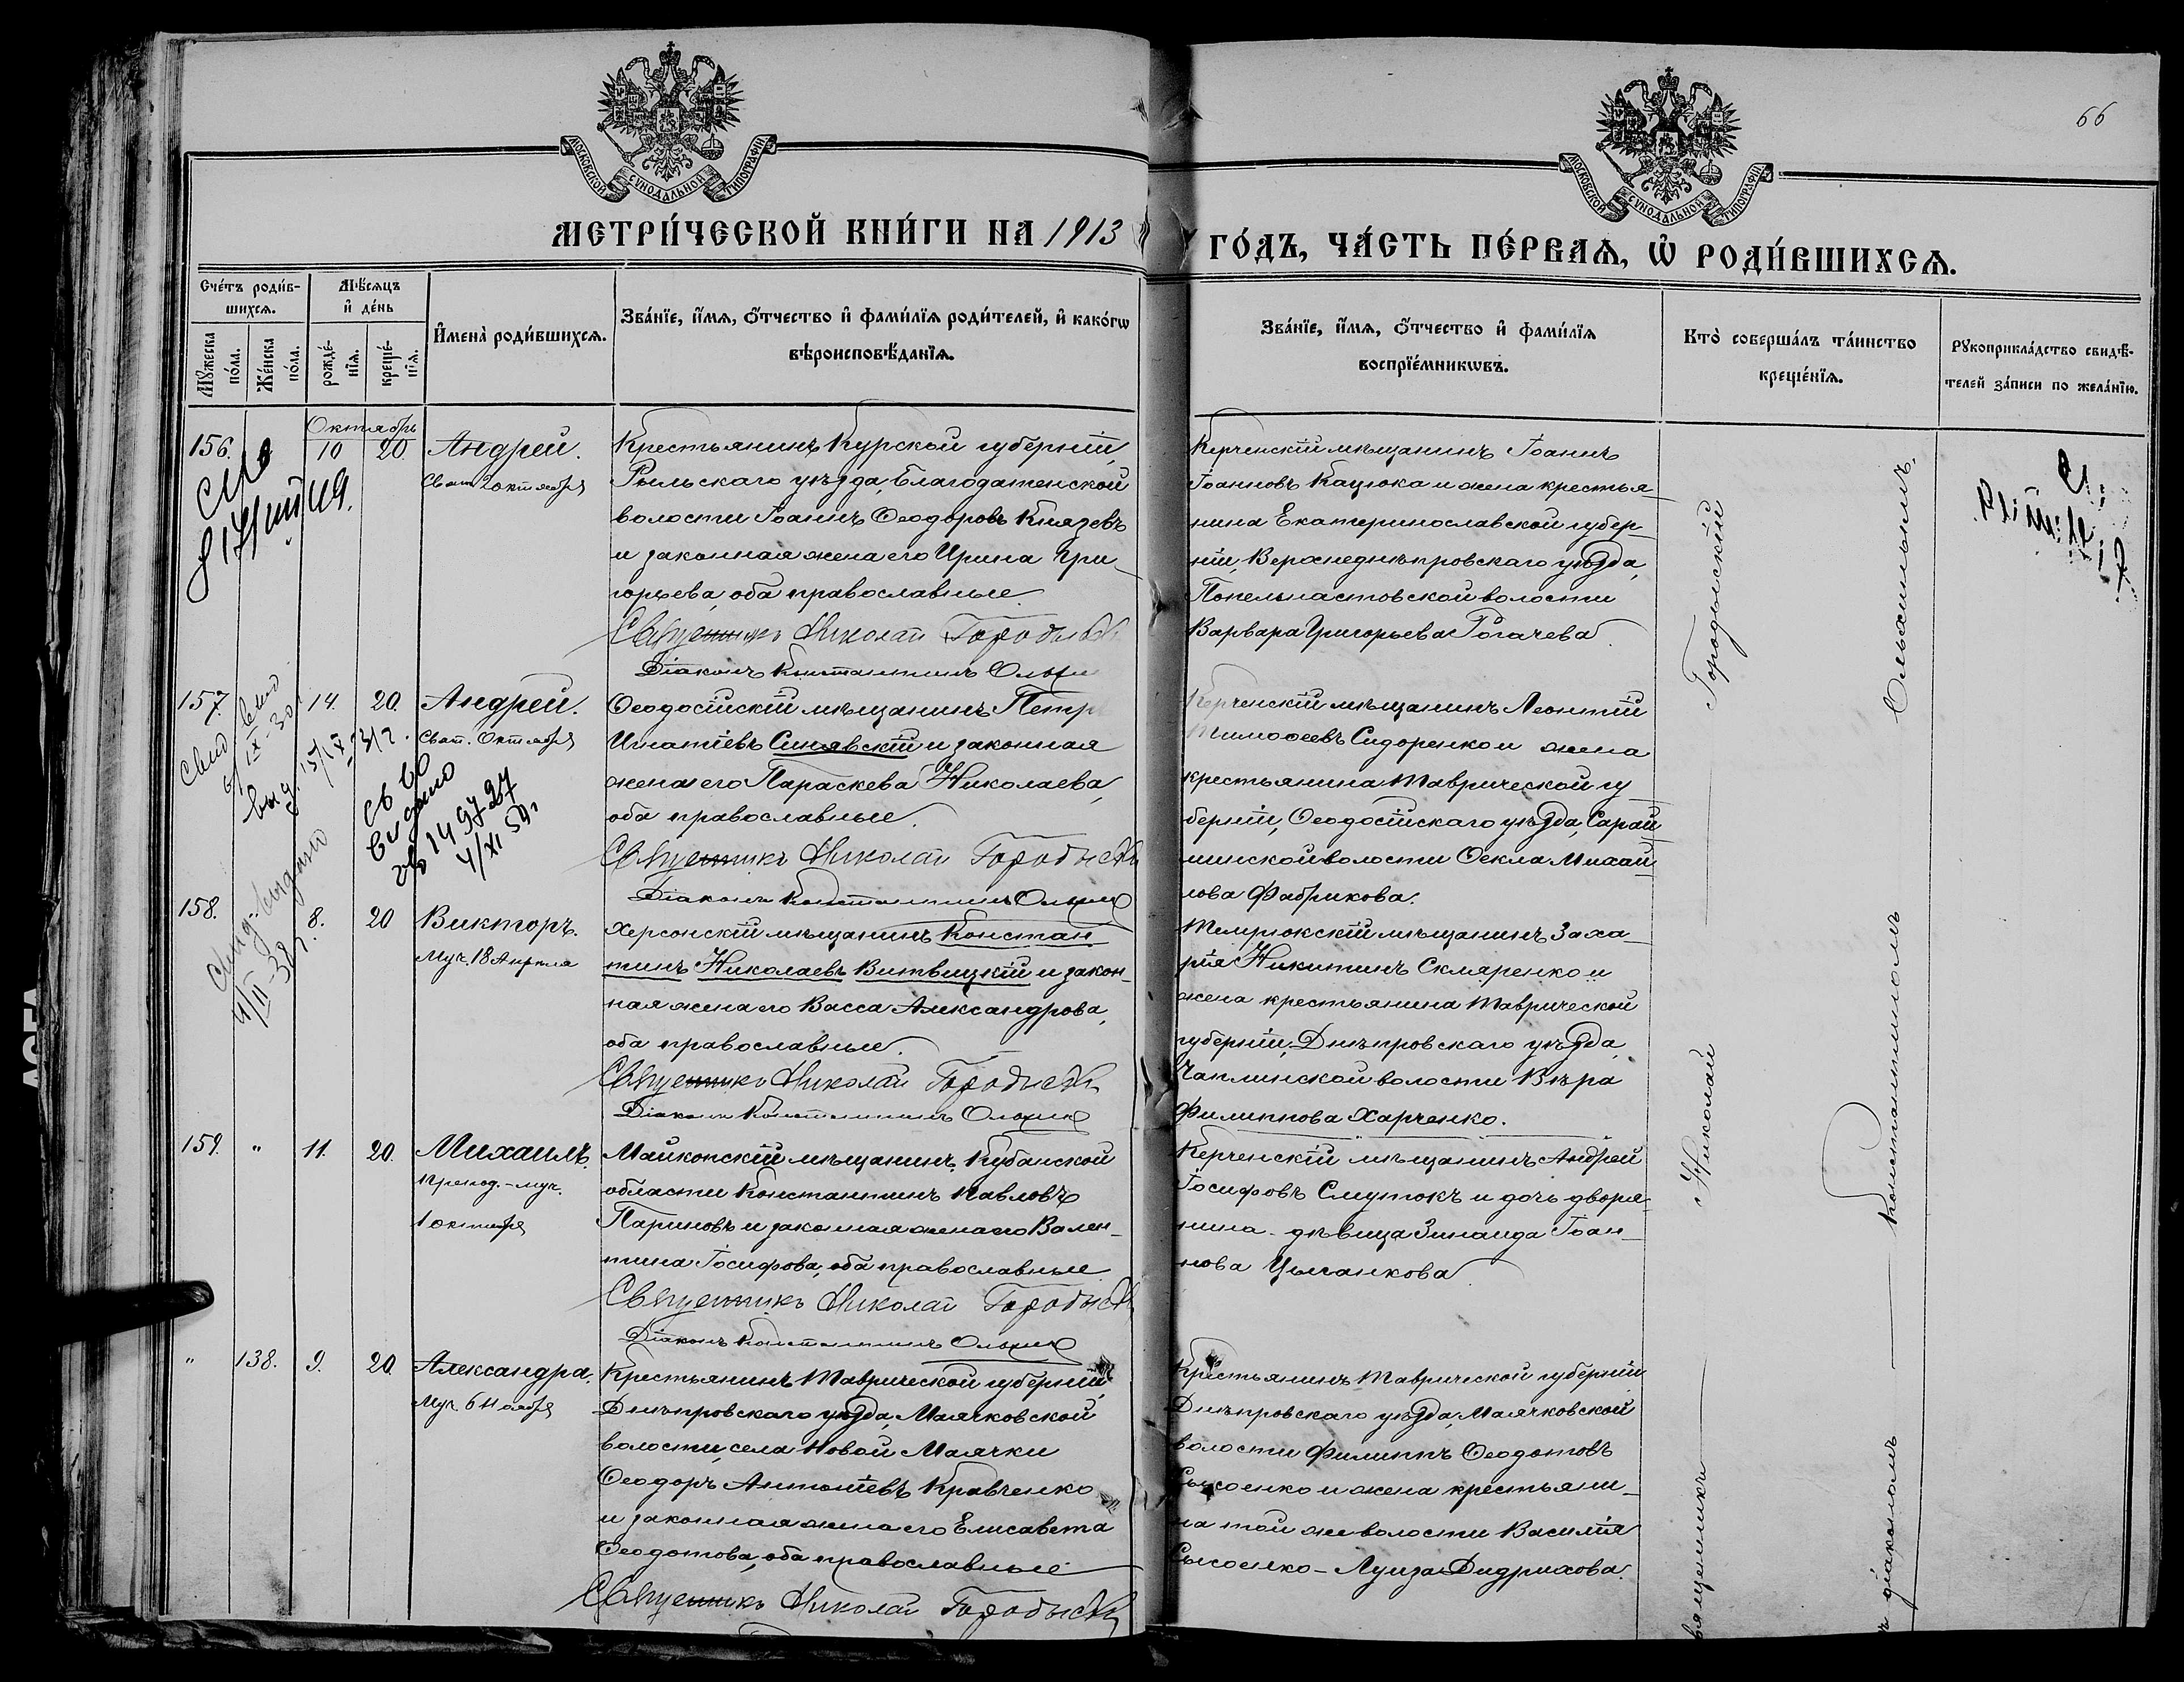 66
МОСКОВСКОЙ СУНОДАЛЬНОЙ ТИПОГРАФІИ
МОСКОВСКОЙ СУНОДАЛЬНОЙ ТИПОГРАФІИ
МЕТРИ́ЧЕСКОЙ КНИ́ГИ НА 1913
ГО́ДЪ, ЧА́СТЬ ПЕ́РВАѦ, Ѡ РОДИ́ВШИХСѦ.
Сче́тъ роди́в-
шихсѧ.
Мꙋжеска по́ла.
Же́нска по́ла.
Мѣ́сѧцъ
и де́нь
рожде́-
нїѧ.
креще́-
нїѧ.
И҆мена̀ роди́вшихсѧ.
Зва́нїе, и҆́мѧ, ѻ҆́тчество и҆ фами́лїѧ роди́телей, и҆ како́гѡ
вѣроисповѣ́данїѧ.
Зва́нїе, и҆́мѧ, ѻ҆́тчество и҆ фами́лїѧ
воспрїе́мникѡвъ.
Кто̀ соверша́лъ та́инство
креще́нїѧ.
Рꙋкоприкла́дство свидѣ́-
телей за́писи по жела́нїю.
Октябрь
156.
10
20.
Андрей.
Свят 2 октября
Крестьянинъ Курской губерніи,
Рыльскаго уѣзда, Благодатенской
волости Іоаннъ Ѳеодоровъ Князевъ
и законная жена его Ирина Гри-
горьева, оба православные.
Священникъ Николай Городыскій
Діаконъ Константинъ
Керченскій мѣщанинъ Іоаннъ
Іоанновъ Кацюка и жена крестья-
нина Екатеринославской губер-
ніи, Верхнеднѣпровскаго уѣзда,
Попельнастовской волости
Варвара Григорьева Рогачева.
157.
14.
20.
Андрей.
Свят. Октября
Ѳеодосійскій мѣщанинъ Петръ
Игнатіевъ Синявскій и законная
жена его Параскева Николаева,
оба православные.
Священникъ Николай Городыскій
Діаконъ Константинъ
Керченскій мѣщанинъ Леонтій
Тимоѳеевъ Сидоренко и жена
крестьянина Таврической гу-
берніи, Ѳеодосійскаго уѣзда, Сарай-
минской волости Ѳекла Михай-
лова Фабрикова.
158.
8.
20
Викторъ.
Муч. 18 Апрѣля
Херсонскій мѣщанинъ Констан-
тинъ Николаевъ Витвицкій и закон-
ная жена его Васса Александрова,
оба православные.
Священникъ Николай Городыскій
Діаконъ Константинъ
Темрюкскій мѣщанинъ Заха-
рія Никитинъ Скляренко и
жена крестьянина Таврической
губерніи, Днѣпровскаго уѣзда,
Чаплинской волости Вѣра
Филиппова Харченко.
159.
"
11.
20.
Михаилъ.
препод.-муч.
1 октября
Майкопскій мѣщанинъ, Кубанской
области Константинъ Павловъ
Париновъ и законная жена его Вален-
тина Іосифова, оба православные.
Священникъ Николай Городыскій
Діаконъ Константинъ
Керченскій мѣщанинъ Андрей
Іосифовъ Смутокъ и дочь дворя-
нина - дѣвица Зинаида Іоан-
нова Цыганкова.
"
138.
9.
20.
Александра.
Муч. 6 Ноября
Крестьянинъ Таврической губерніи,
Днѣпровскаго уѣзда, Маячковской
волости, села Новой Маячки
Ѳеодоръ Антоніевъ Кравченко
и законная жена его Елисавета
Ѳеодотова, оба православные.
Священникъ Николай Городыскій
Крестьянинъ Таврической губерніи,
Днѣпровскаго уѣзда, Маячковской
волости Филиппъ Ѳеодотовъ
Сысоенко и жена крестьяни-
на той же волости Василія
Сысоенко - Луиза Дидрихова.
Священникъ Николай Городыскій
съ діакономъ Константиномъ